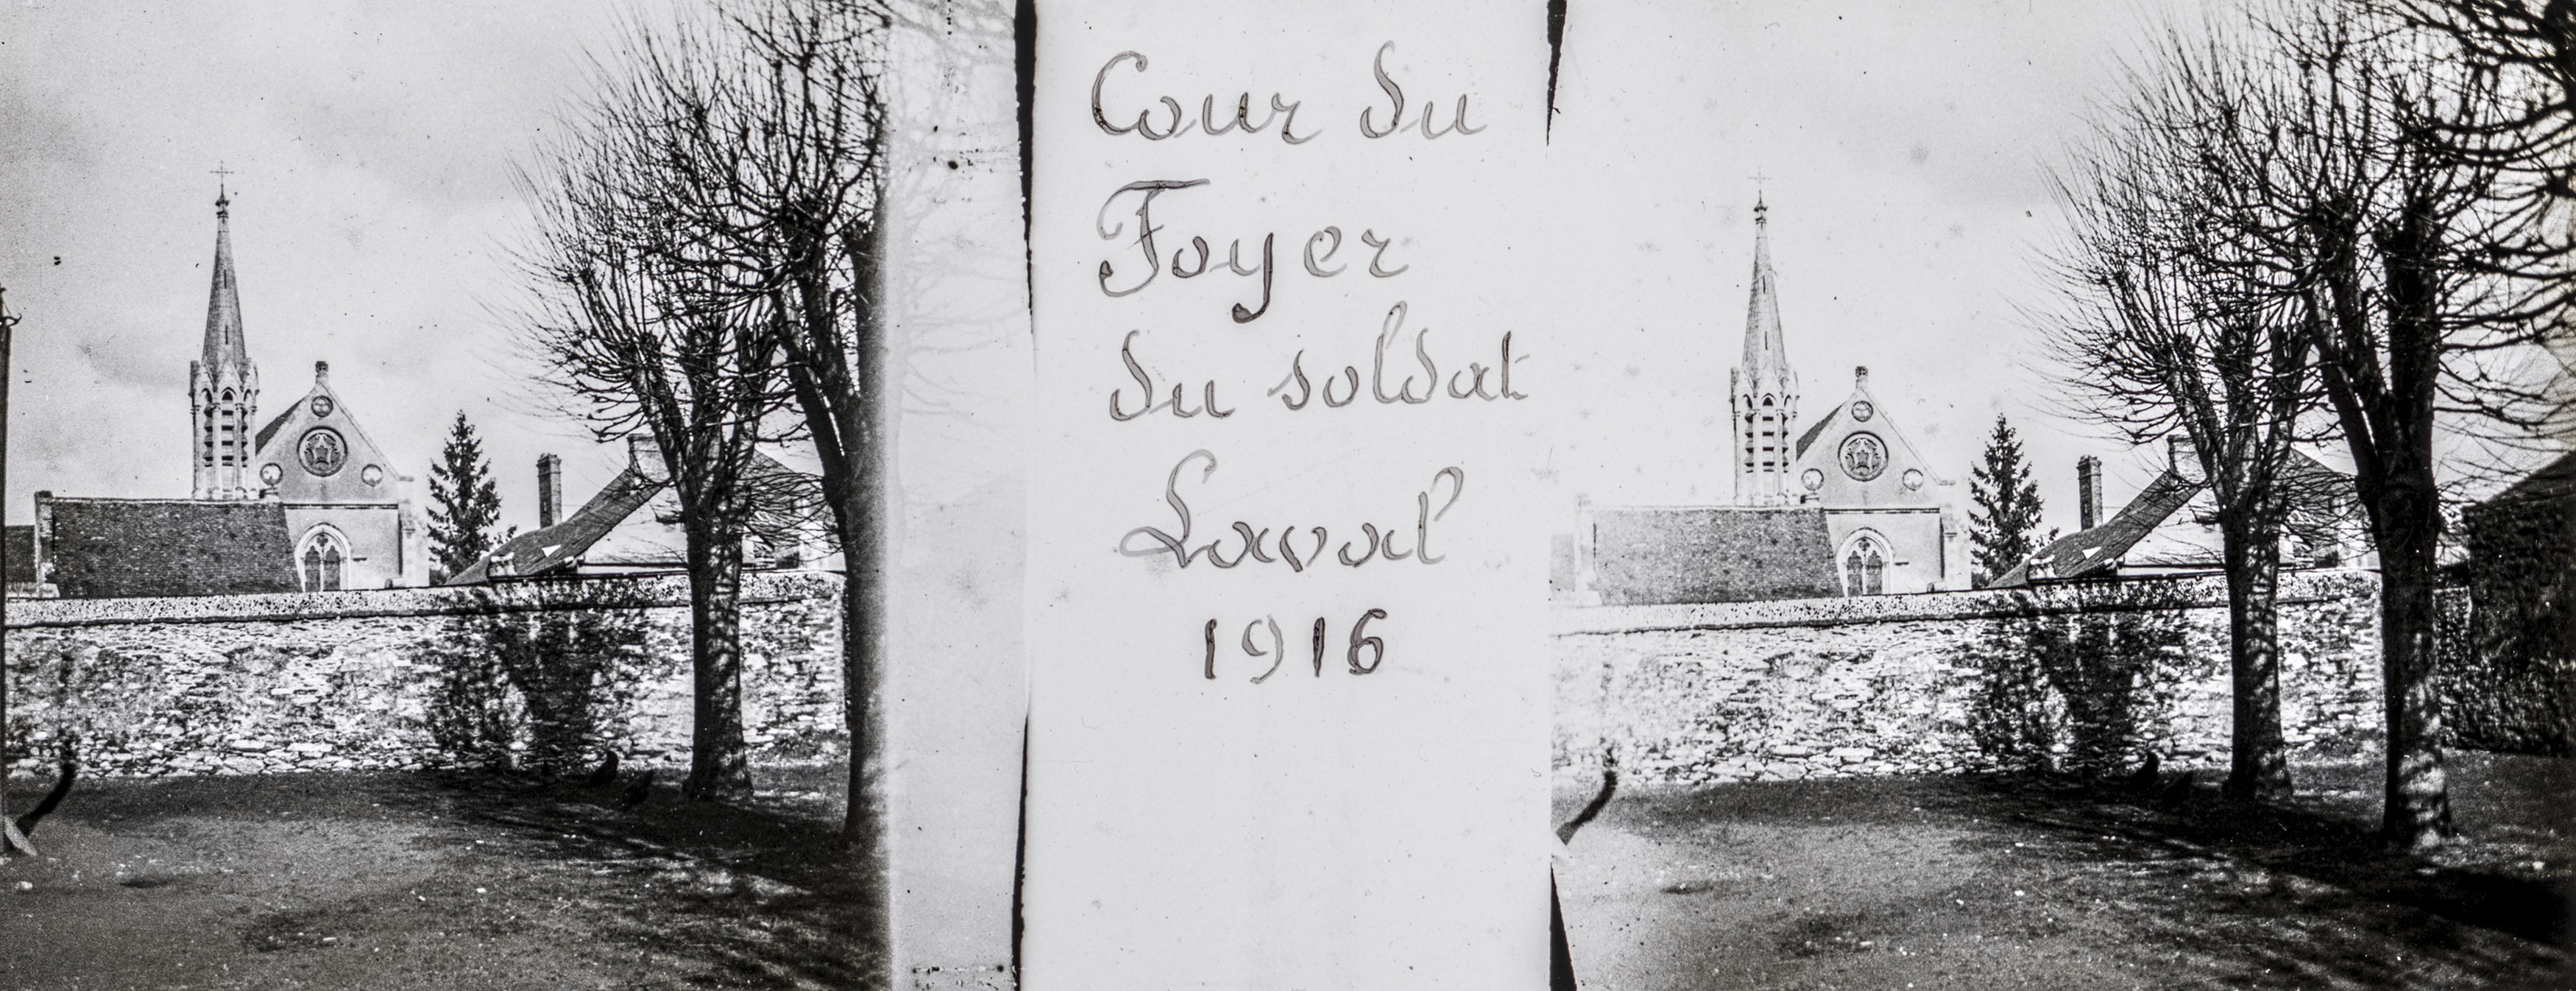 Cour du
Foyer
du soldat
Laval
1916